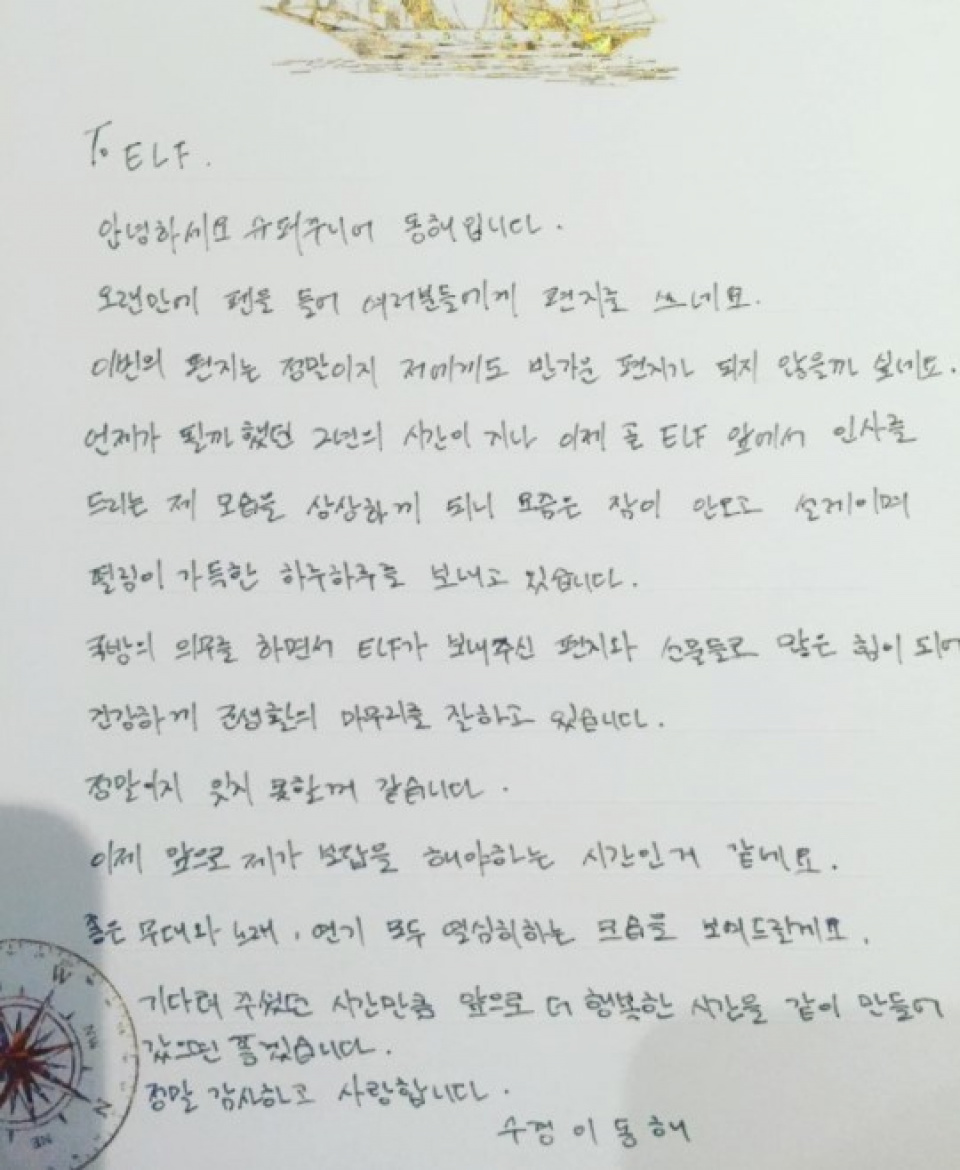 To ELF.
안녕하세요 슈퍼주니어 동해입니다.
오랜만에 펜을 들어 여러분들에게 편지를 쓰네요.
이번의 편지는 정말이지 저에게도 반가운 편지가 되지 않을까 싶네요.
언제가 될까 했던 2년의 시간이 지나 이제 곧 ELF 앞에서 인사를
드리는 제 모습을 상상하게 되니 요즘은 잠이 안오고 설레이며
떨림이 가득한 하루하루를 보내고 있습니다.
국방의 의무를 하면서 ELF가 보내주신 편지와 선물들로 많은 힘이 되어
건강하게 군생활의 마무리를 잘하고 있습니다.
정말이지 잊지 못할꺼 같습니다.
이제 앞으로 제가 보답을 해야하는 시간인거 같네요.
좋은 무대와 노래, 연기 모두 열심히하는 모습을 보여드릴게요.
기다려 주셨던 시간만큼 앞으로 더 행복한 시간을 같이 만들어
갔으면 좋겠습니다.
정말 감사하고 사랑합니다.
수경 이동해
N
NE